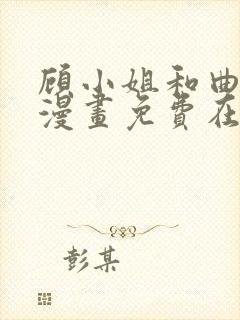 顾小姐和曲
漫畫免費在
彭某